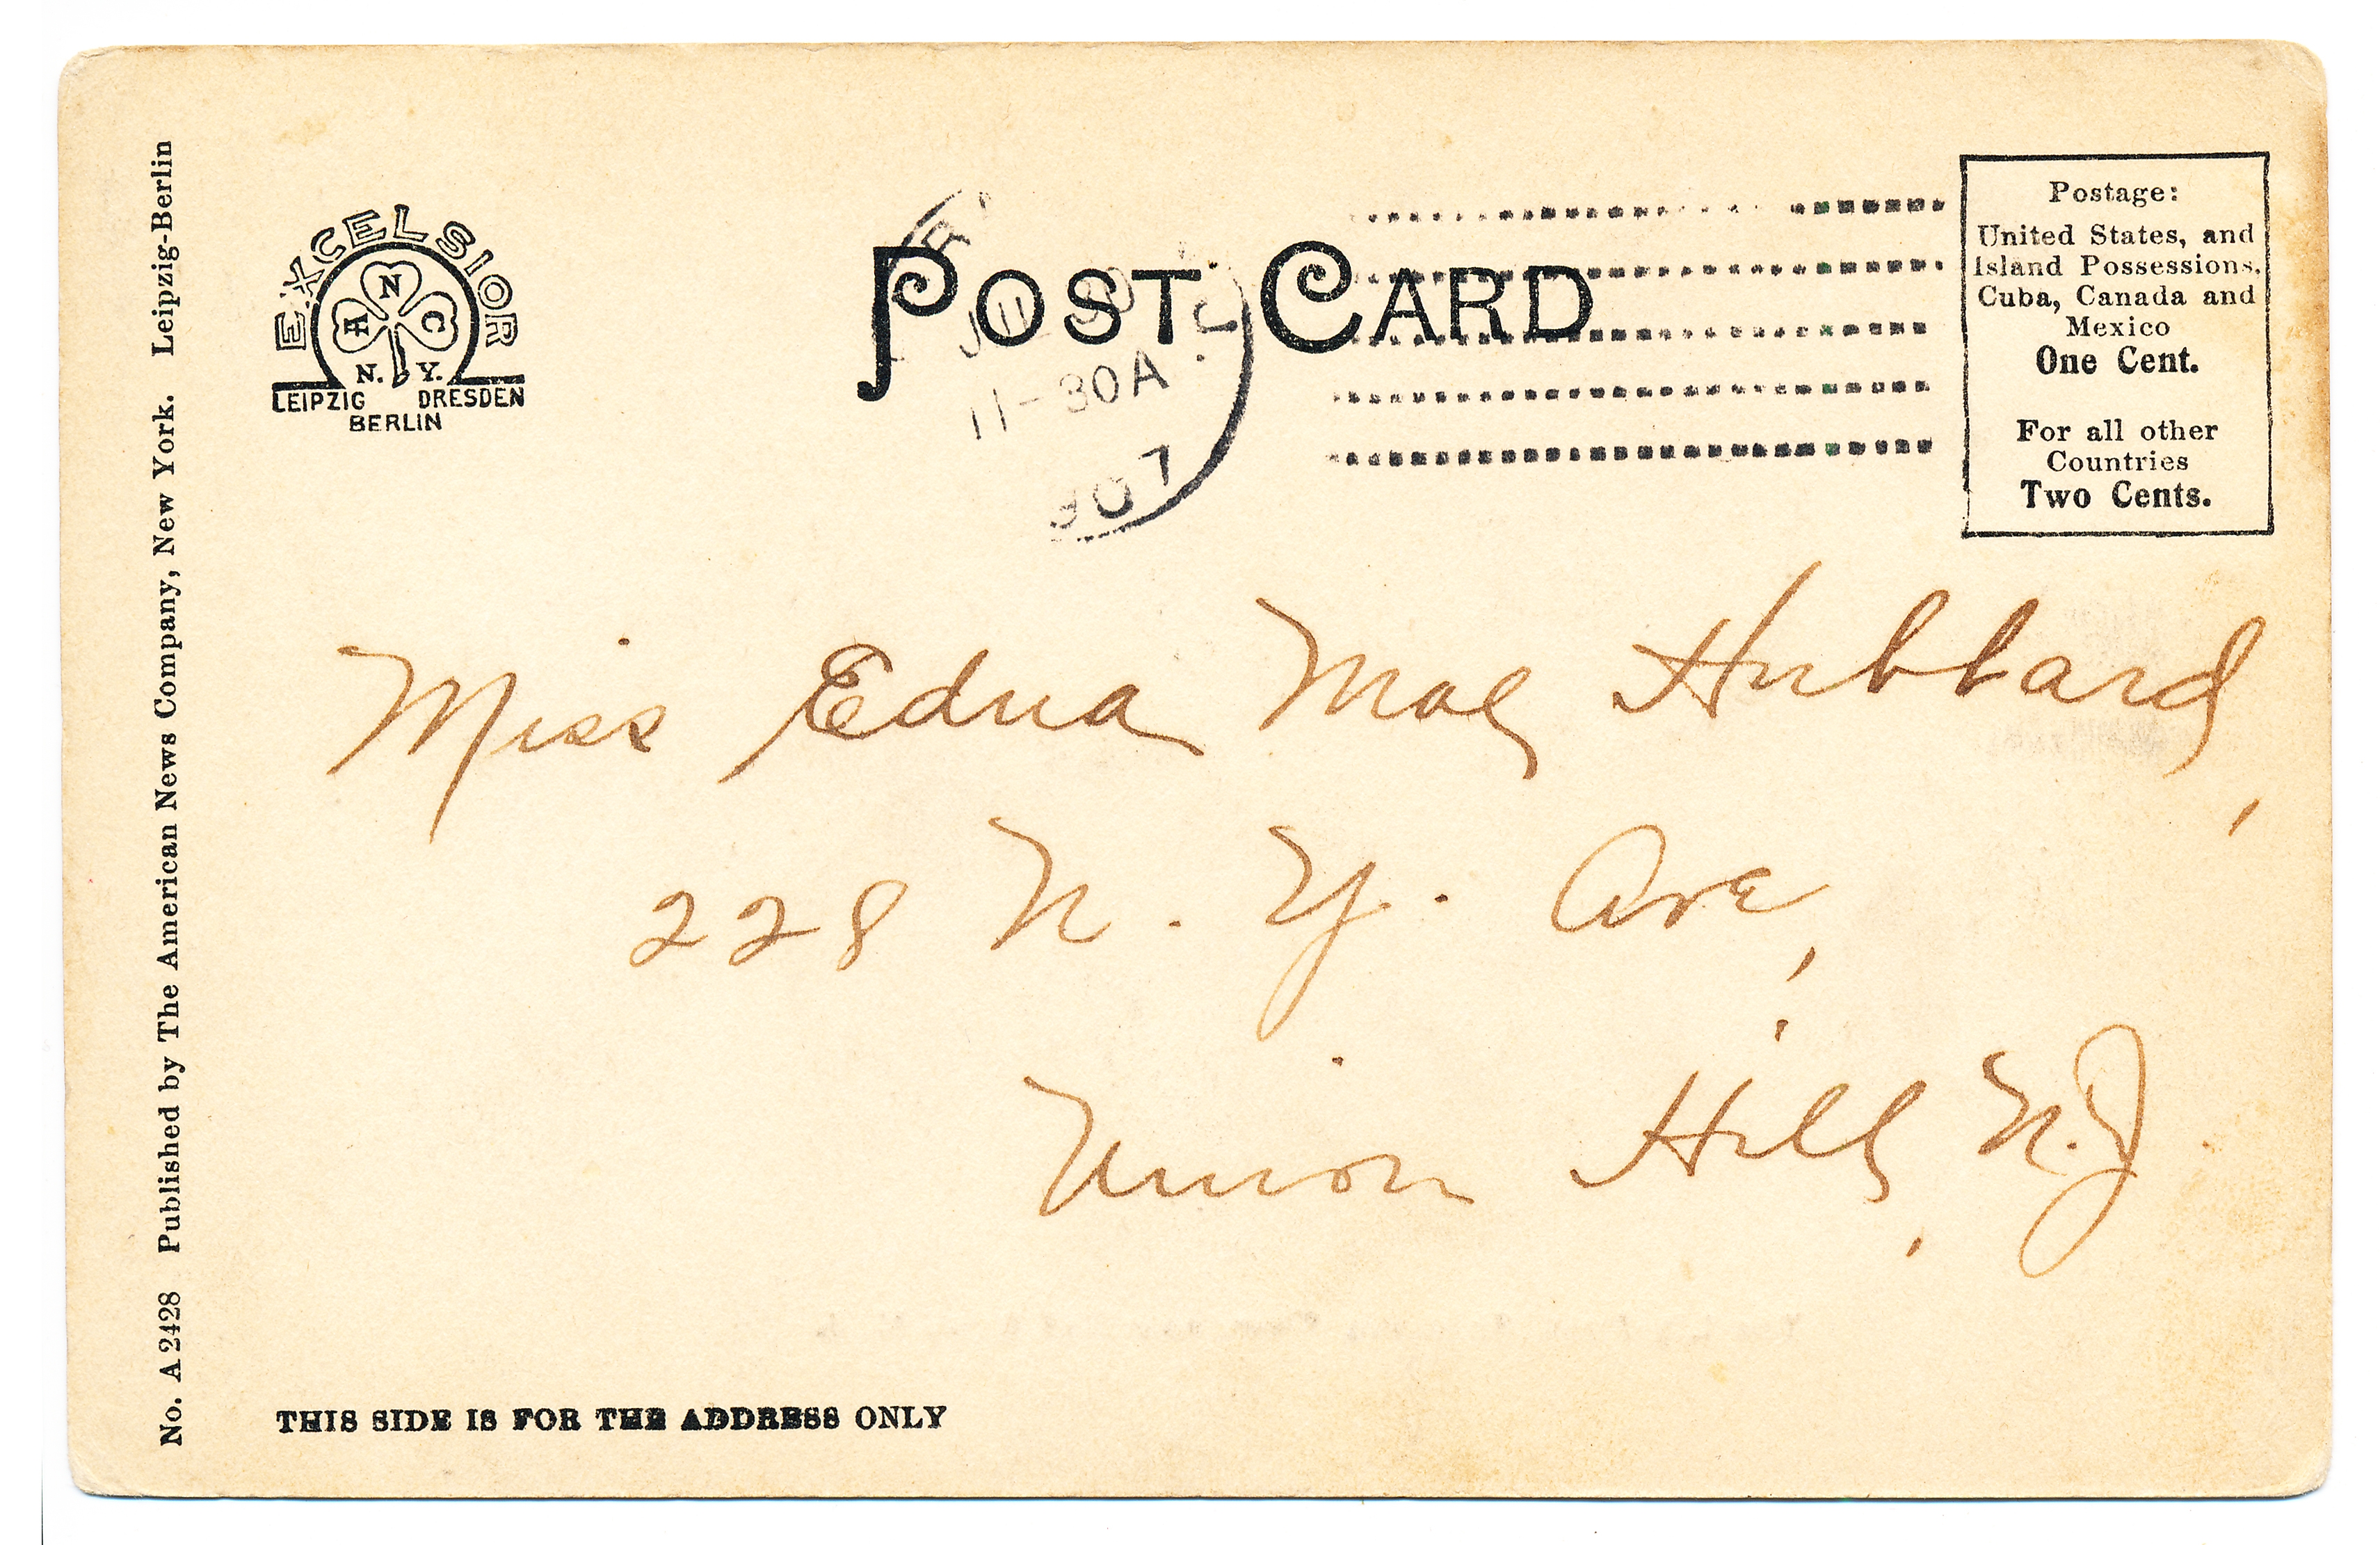 No. A 2428 Published by The American News Company, New York. Leipzig-Berlin
EXCELSIOR
A N C
N. Y.
LEIPZIG DRESDEN
BERLIN
POST CARD
11-30A
907
Postage:
United States, and
Island Possessions,
Cuba, Canada and
Mexico
One Cent.
For all other
Countries
Two Cents.
Miss Edna Mae Hubbard,
228 N. Y. Ave,
Union Hill, N.J.
THIS SIDE IS FOR THE ADDRESS ONLY